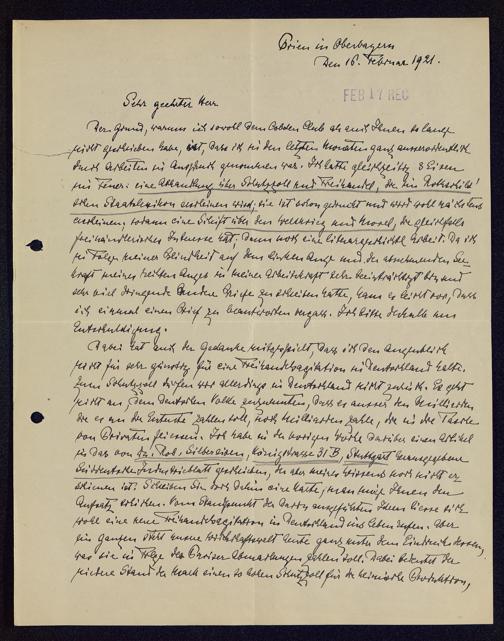 Prien in Oberbayern
Den 16. Februar 1921.
FEB 17 REC
Sehr geehrter Herr
Der Grund, warum ich sowohl dem Cobden Club als auch Ihnen so lange
nicht geschrieben habe, ist, dass ich in den letzten Monaten ganz ausserordentlich
durch Arbeiten in Anspruch genommen war. Ich hatte gleichzeitig 3 Eisen
im Feuer: eine Abhandlung über Schutzzoll und Freihandel, die im
Staatslexikon erscheinen wird; sie ist schon gedruckt und wird wohl nächstens
erscheinen, sodann eine Schrift über den Weltkrieg und Moral, die gleichfalls
freihändlerisches Interesse hat, dann noch eine Arbeit. Da ich
in Folge meiner Blindheit auf dem linken Auge und der abnehmenden Seh-
kraft meines rechten Auges in meiner Arbeitskraft sehr beeinträchtigt bin und
sehr viel dringende andere Briefe zu erledigen hatte, kam es leicht vor, dass
ich einmal einen Brief zu beantworten vergass. Ich bitte deshalb um
Entschuldigung.
Dabei hat auch der Gedanke mitgespielt, dass ich den Augenblick
nicht für sehr günstig für eine Freihandelsagitation in Deutschland halte.
Zum Schutzzoll dürfen wir allerdings in Deutschland nicht zurück. Es geht
nicht an, dem deutschen Volke zuzumuten, dass es ausser den Milliarden
die es an die Entente zahlen soll, noch Milliarden zahle, die in die Tasche
von Privaten fliessen. Ich habe in der vorigen Woche darüber einen Artikel
für das von Dr. Rob. Silbereisen, Königstrasse 31 B, Stuttgart herausgegebene
Süddeutsche Industrieblatt geschrieben, der aber meines Wissens noch nicht er-
schienen ist. Schreiben Sie doch dahin eine Karte, man möge Ihnen den
Aufsatz schicken. Vom Standpunkt des darin ausgeführten Ihnen liesse sich
wohl eine neue Freihandelsagitation in Deutschland ins Leben rufen. Aber
im ganzen steht unsere Wirtschaftswelt heute ganz unter dem Eindruck dessen,
was sie in Folge der Pariser Abmachungen zahlen soll. Dabei bedeutet der
niedere Stand der Mark einen so hohen Schutzzoll für die heimische Produktion,